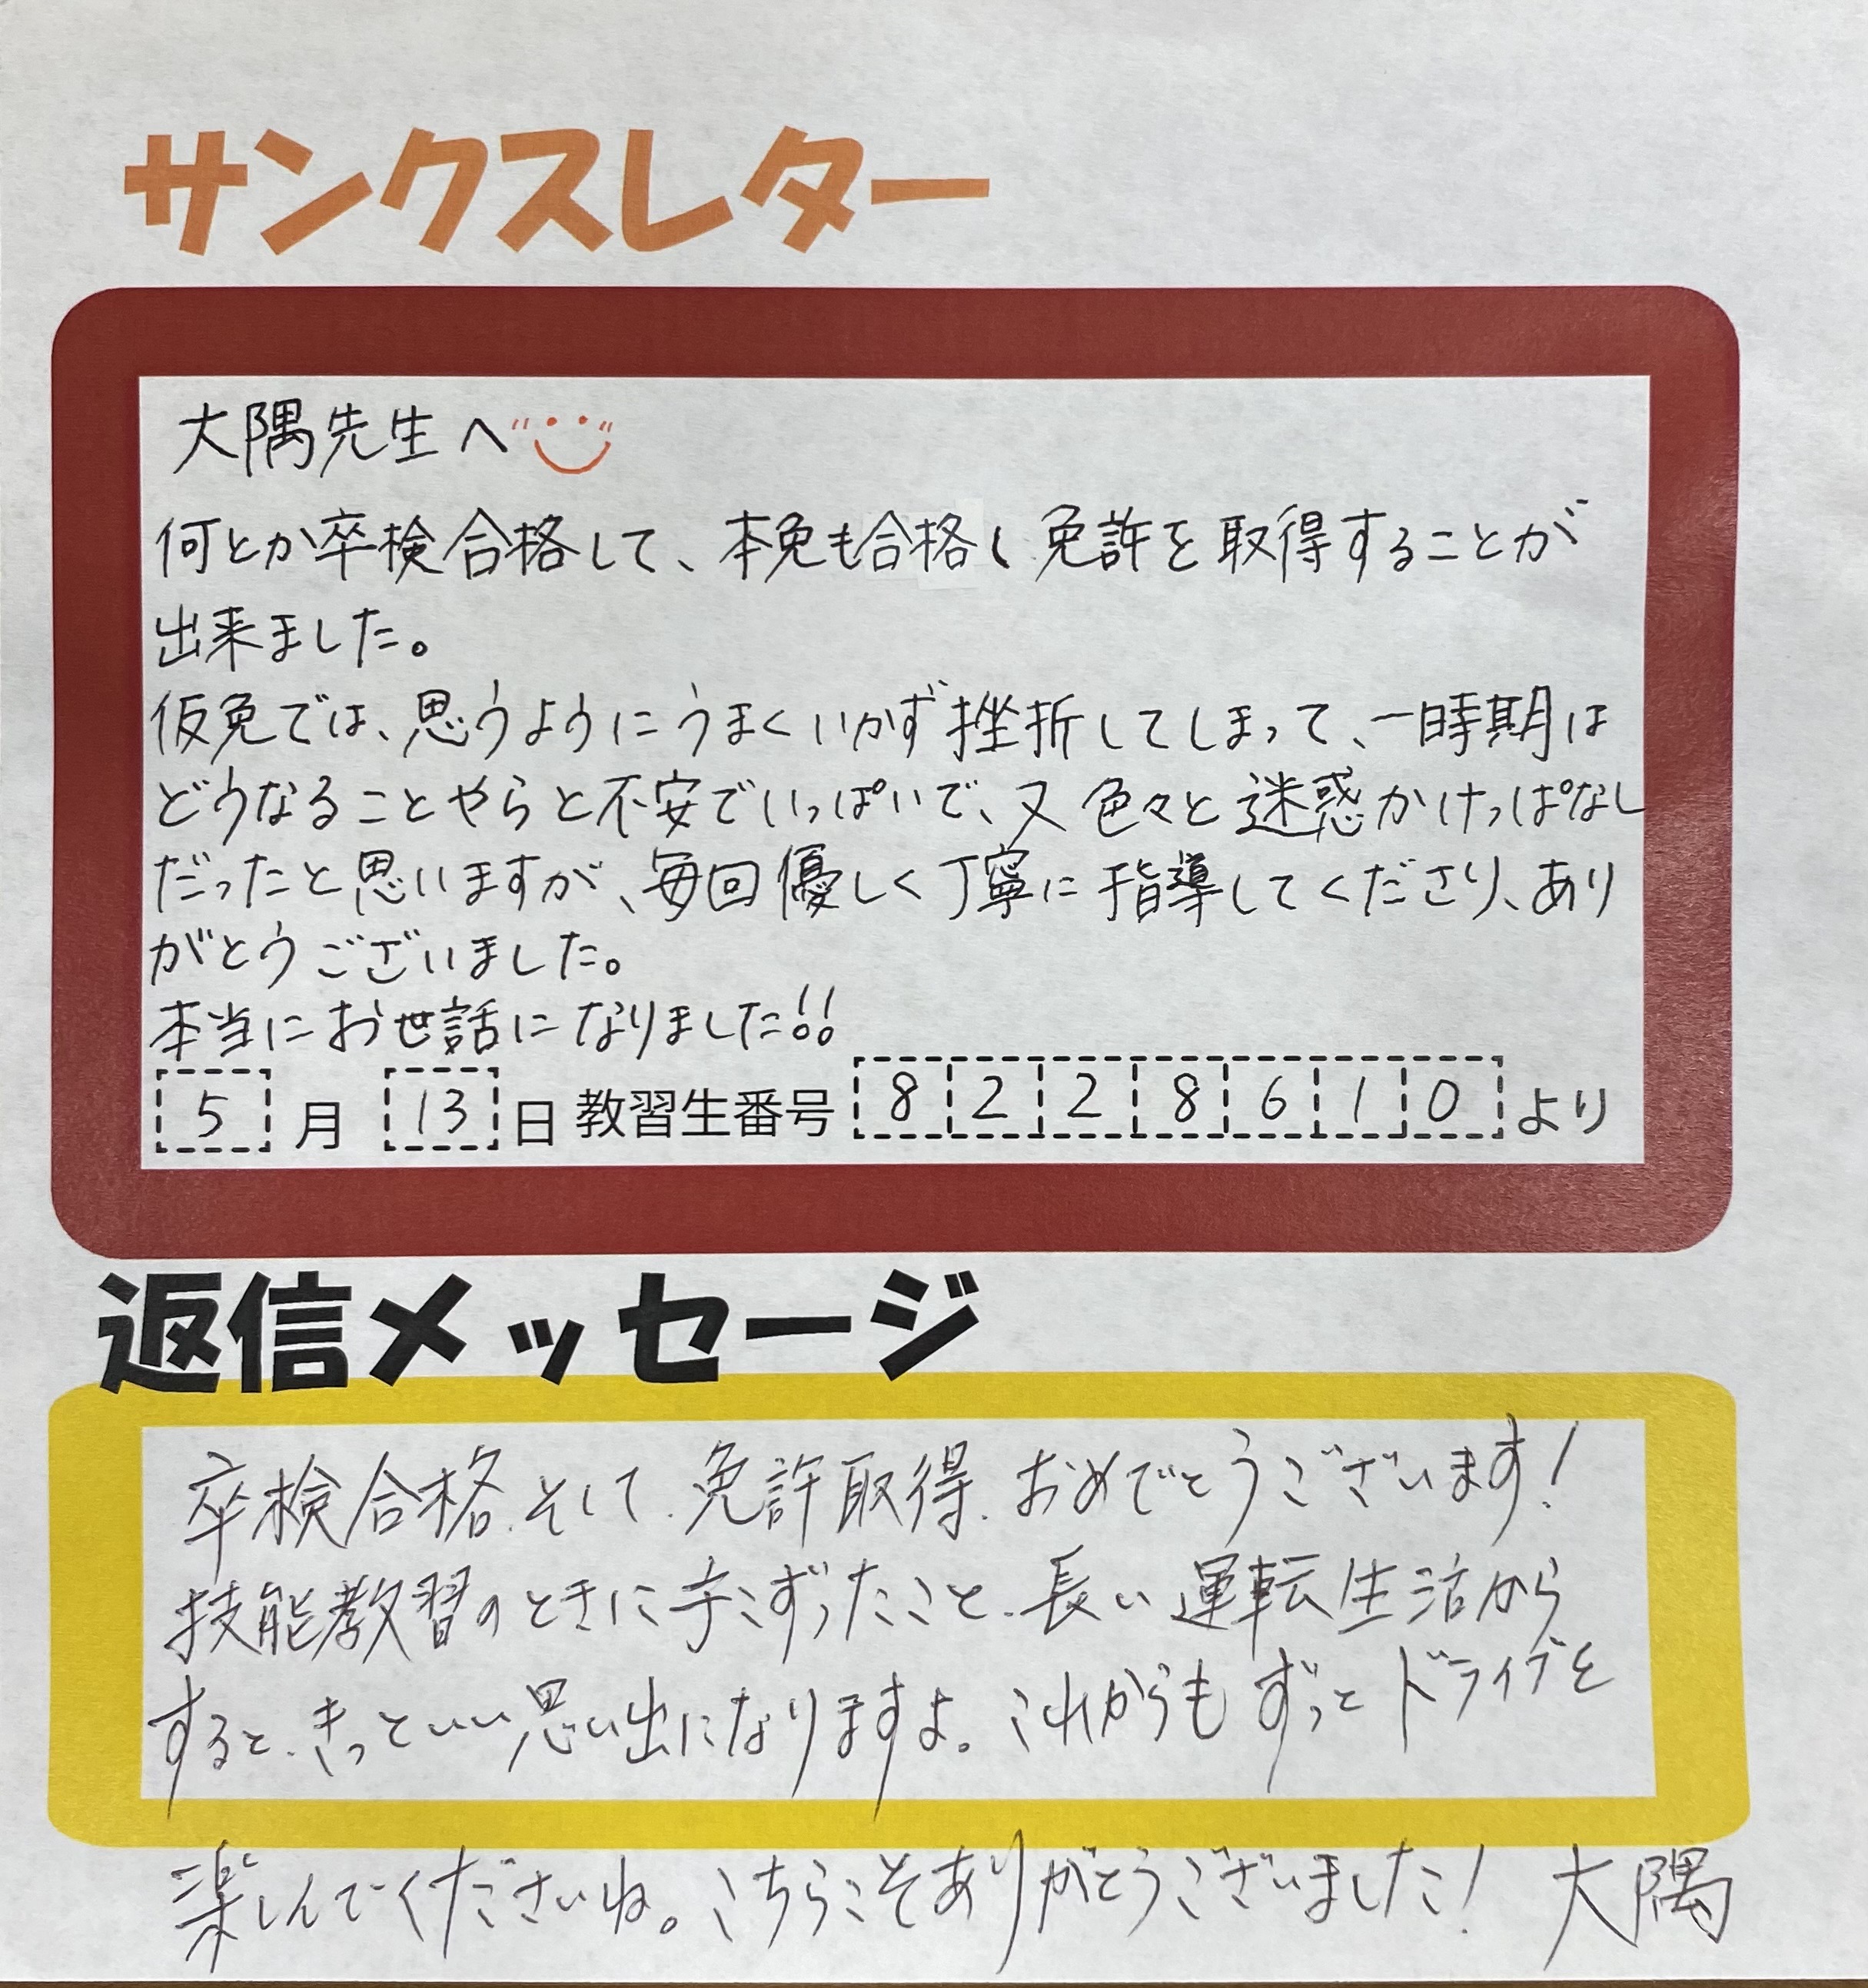 サンクスレター
大隅先生へ
何とか卒検合格して、本免も合格し免許を取得することが
出来ました。
仮免では、思うようにうまくいかず挫折してしまって、一時期は
どうなることやらと不安でいっぱいで、又色々と迷惑かけっぱなし
だったと思いますが、毎回優しく丁寧に指導してくださり、あり
がとうございました。
本当にお世話になりました!!
5月13日教習生番号8228610より
返信メッセージ
卒検合格、そして、免許取得、おめでとうございます!
技能教習のときに手こずったこと、長い運転生活から
すると、きっといい思い出になりますよ。これからもずっとドライブを
楽しんでくださいね。こちらこそありがとうございました! 大隅